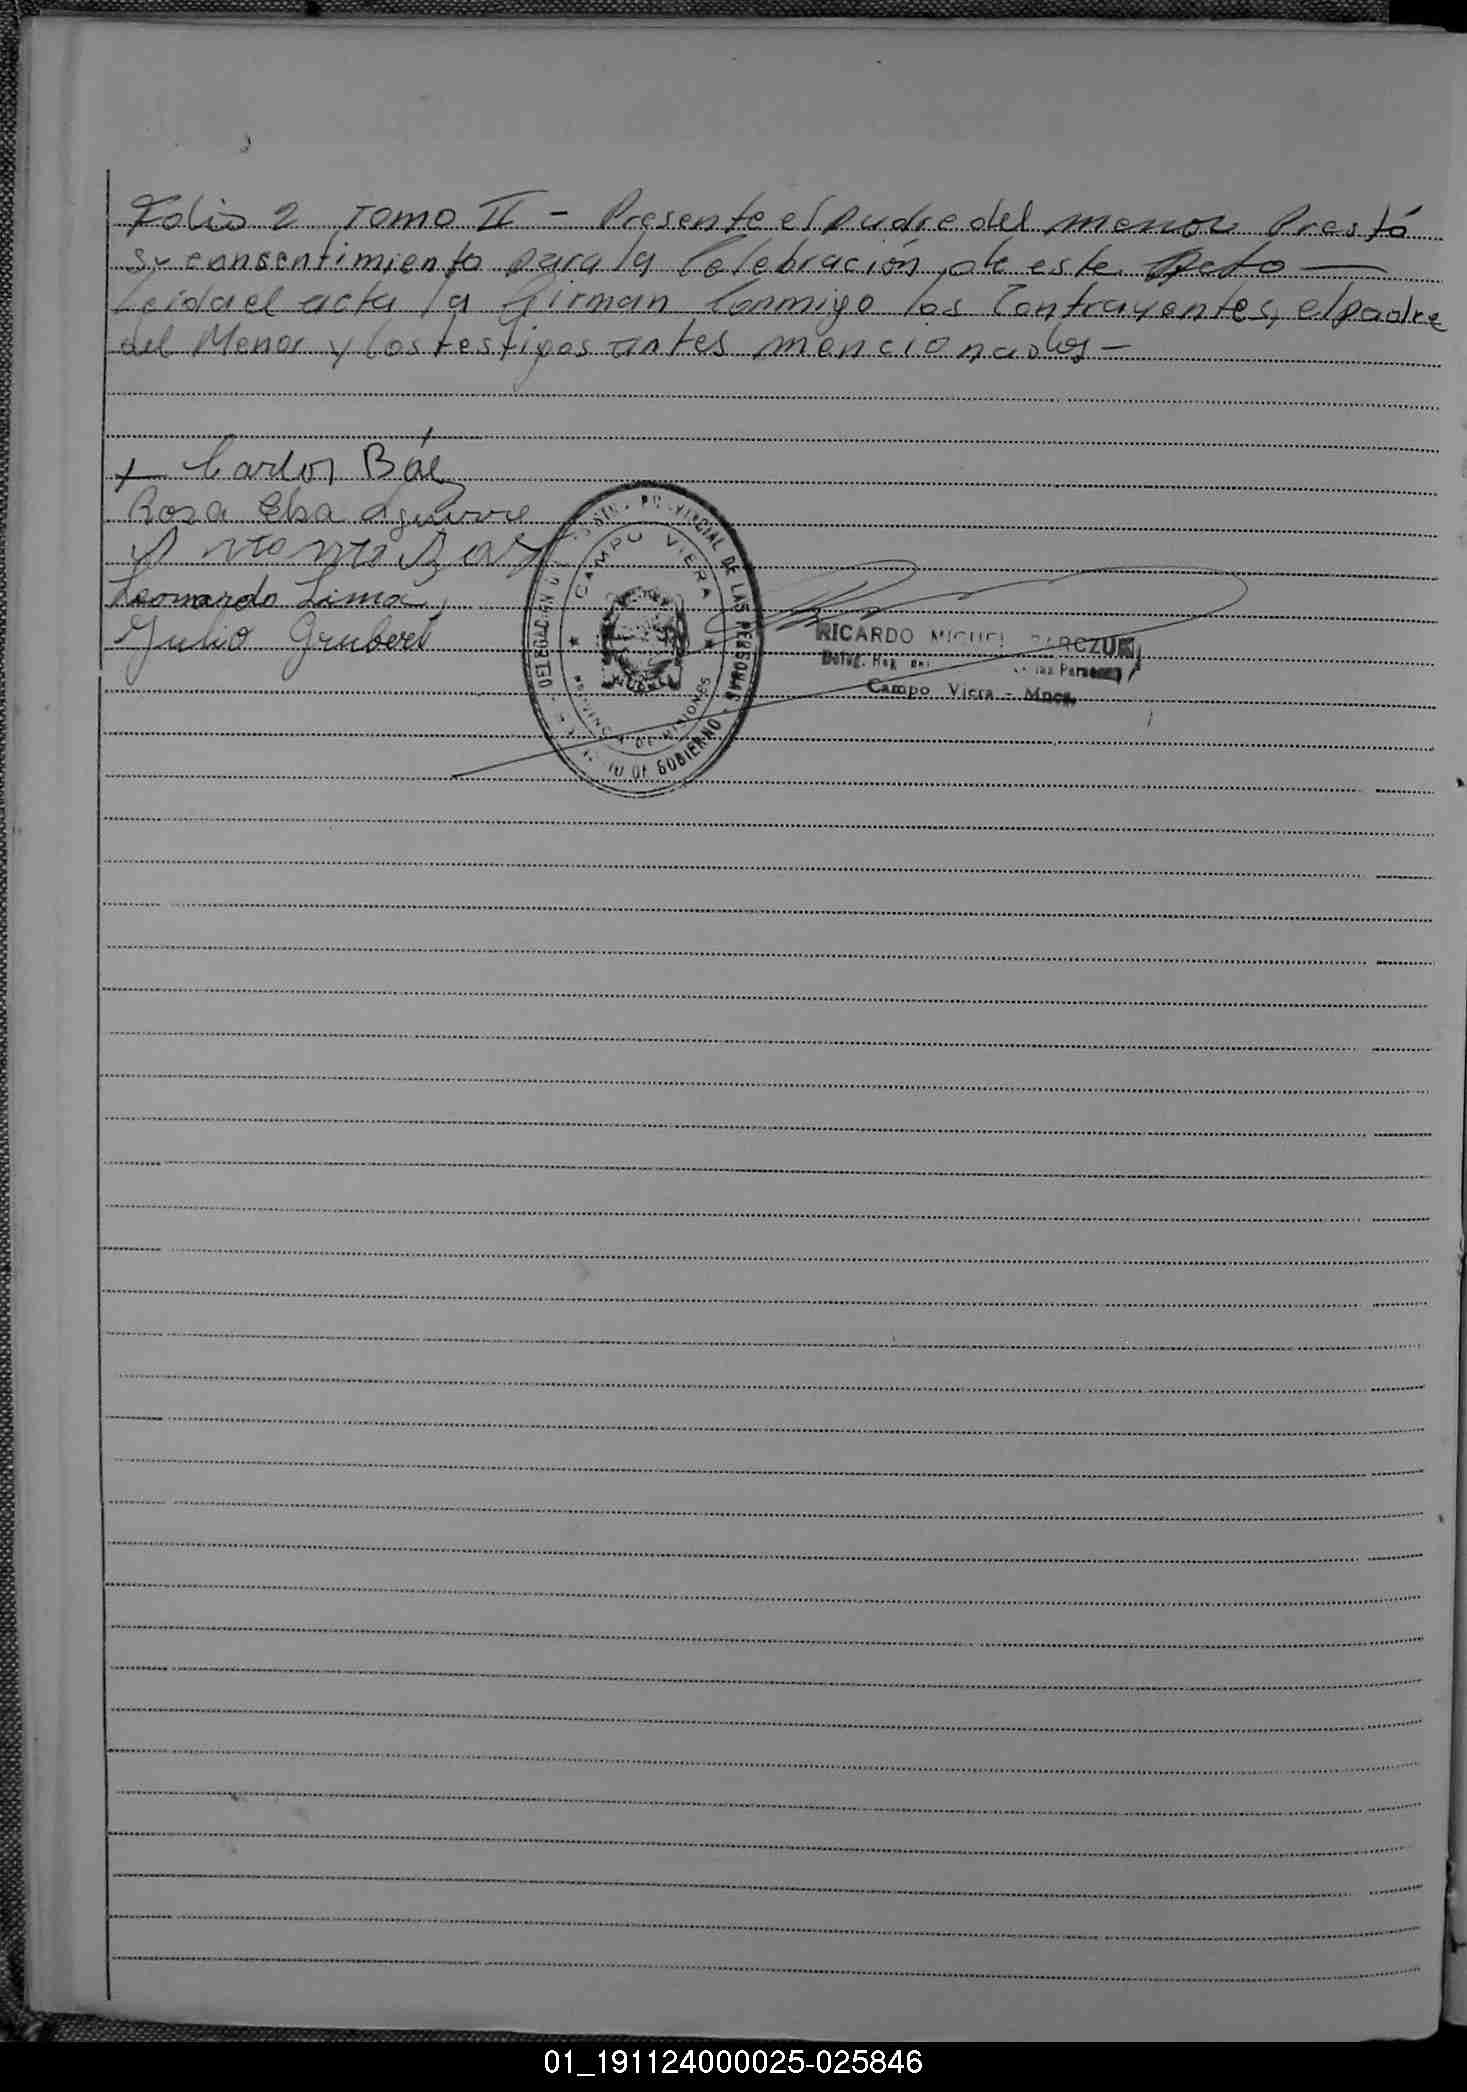 Folio 2 Tomo II - Presente el padre del menor Prestó
su consentimiento para la Celebración de este Acto —
Leida el acta la Firman Conmigo los Contrayentes, el padre
del Menor y los testigos antes mencionados -
Carlos Báez
Rosa Elsa Aguirre
Leonardo Lima
Julio Grubert
DELEGACIÓN PROVINCIAL DE LAS PERSONAS
CAMPO VIERA
PROVINCIA DE MISIONES
DE GOBIERNO
RICARDO MIGUEL
Deleg. Reg. las Personas
Campo Viera - Mnes.
01_191124000025-025846